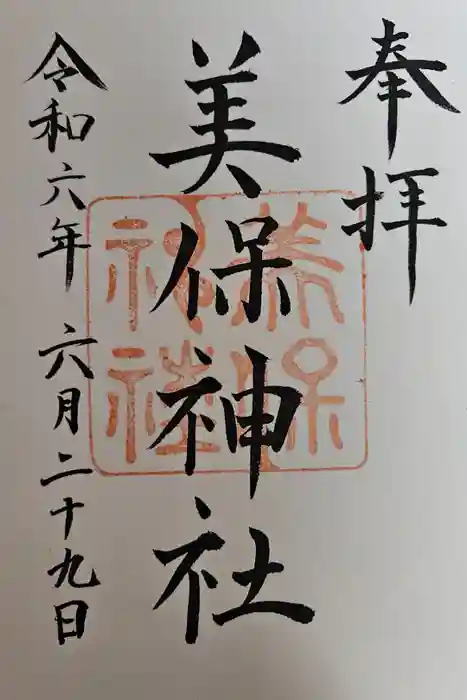 奉拝
美保神社
令和六年 六月二十九日
美保神社